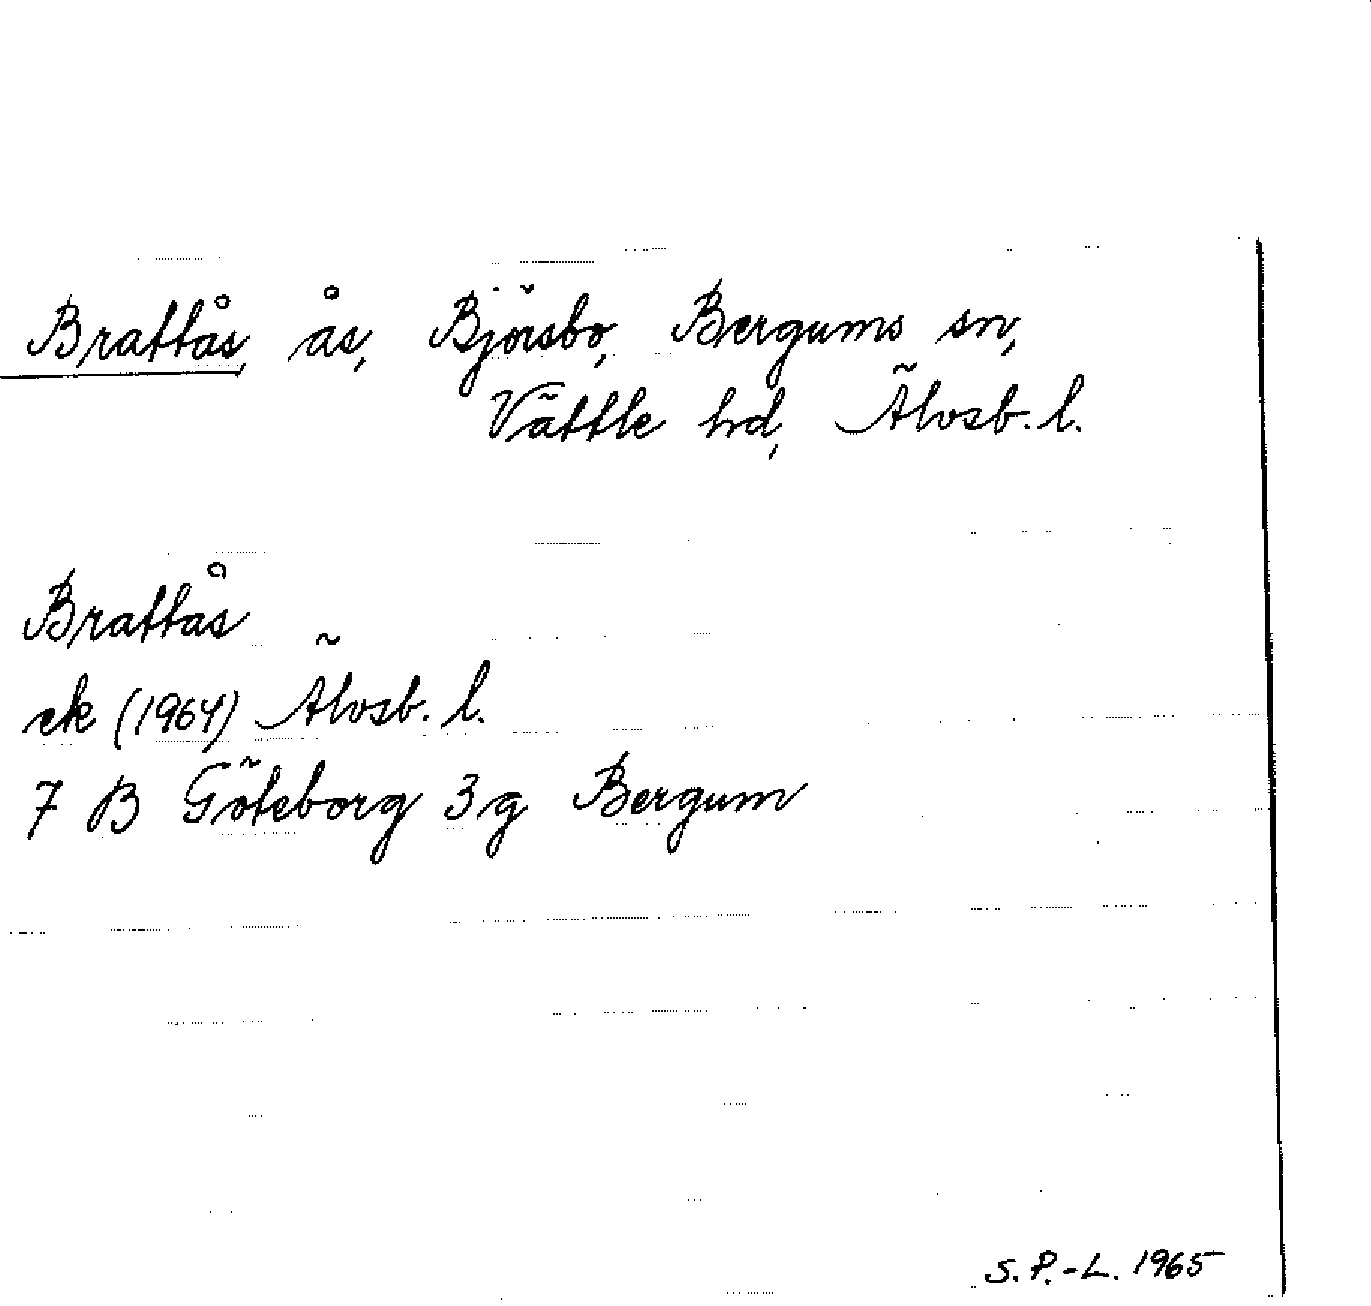 Brattås, ås, Björsbo, Bergums sn,
Vättle hd, Älvsb. l.
Brattås
ek (1964) Älvsb. l.
7 B Göteborg 3g Bergum
S. P.-L. 1965